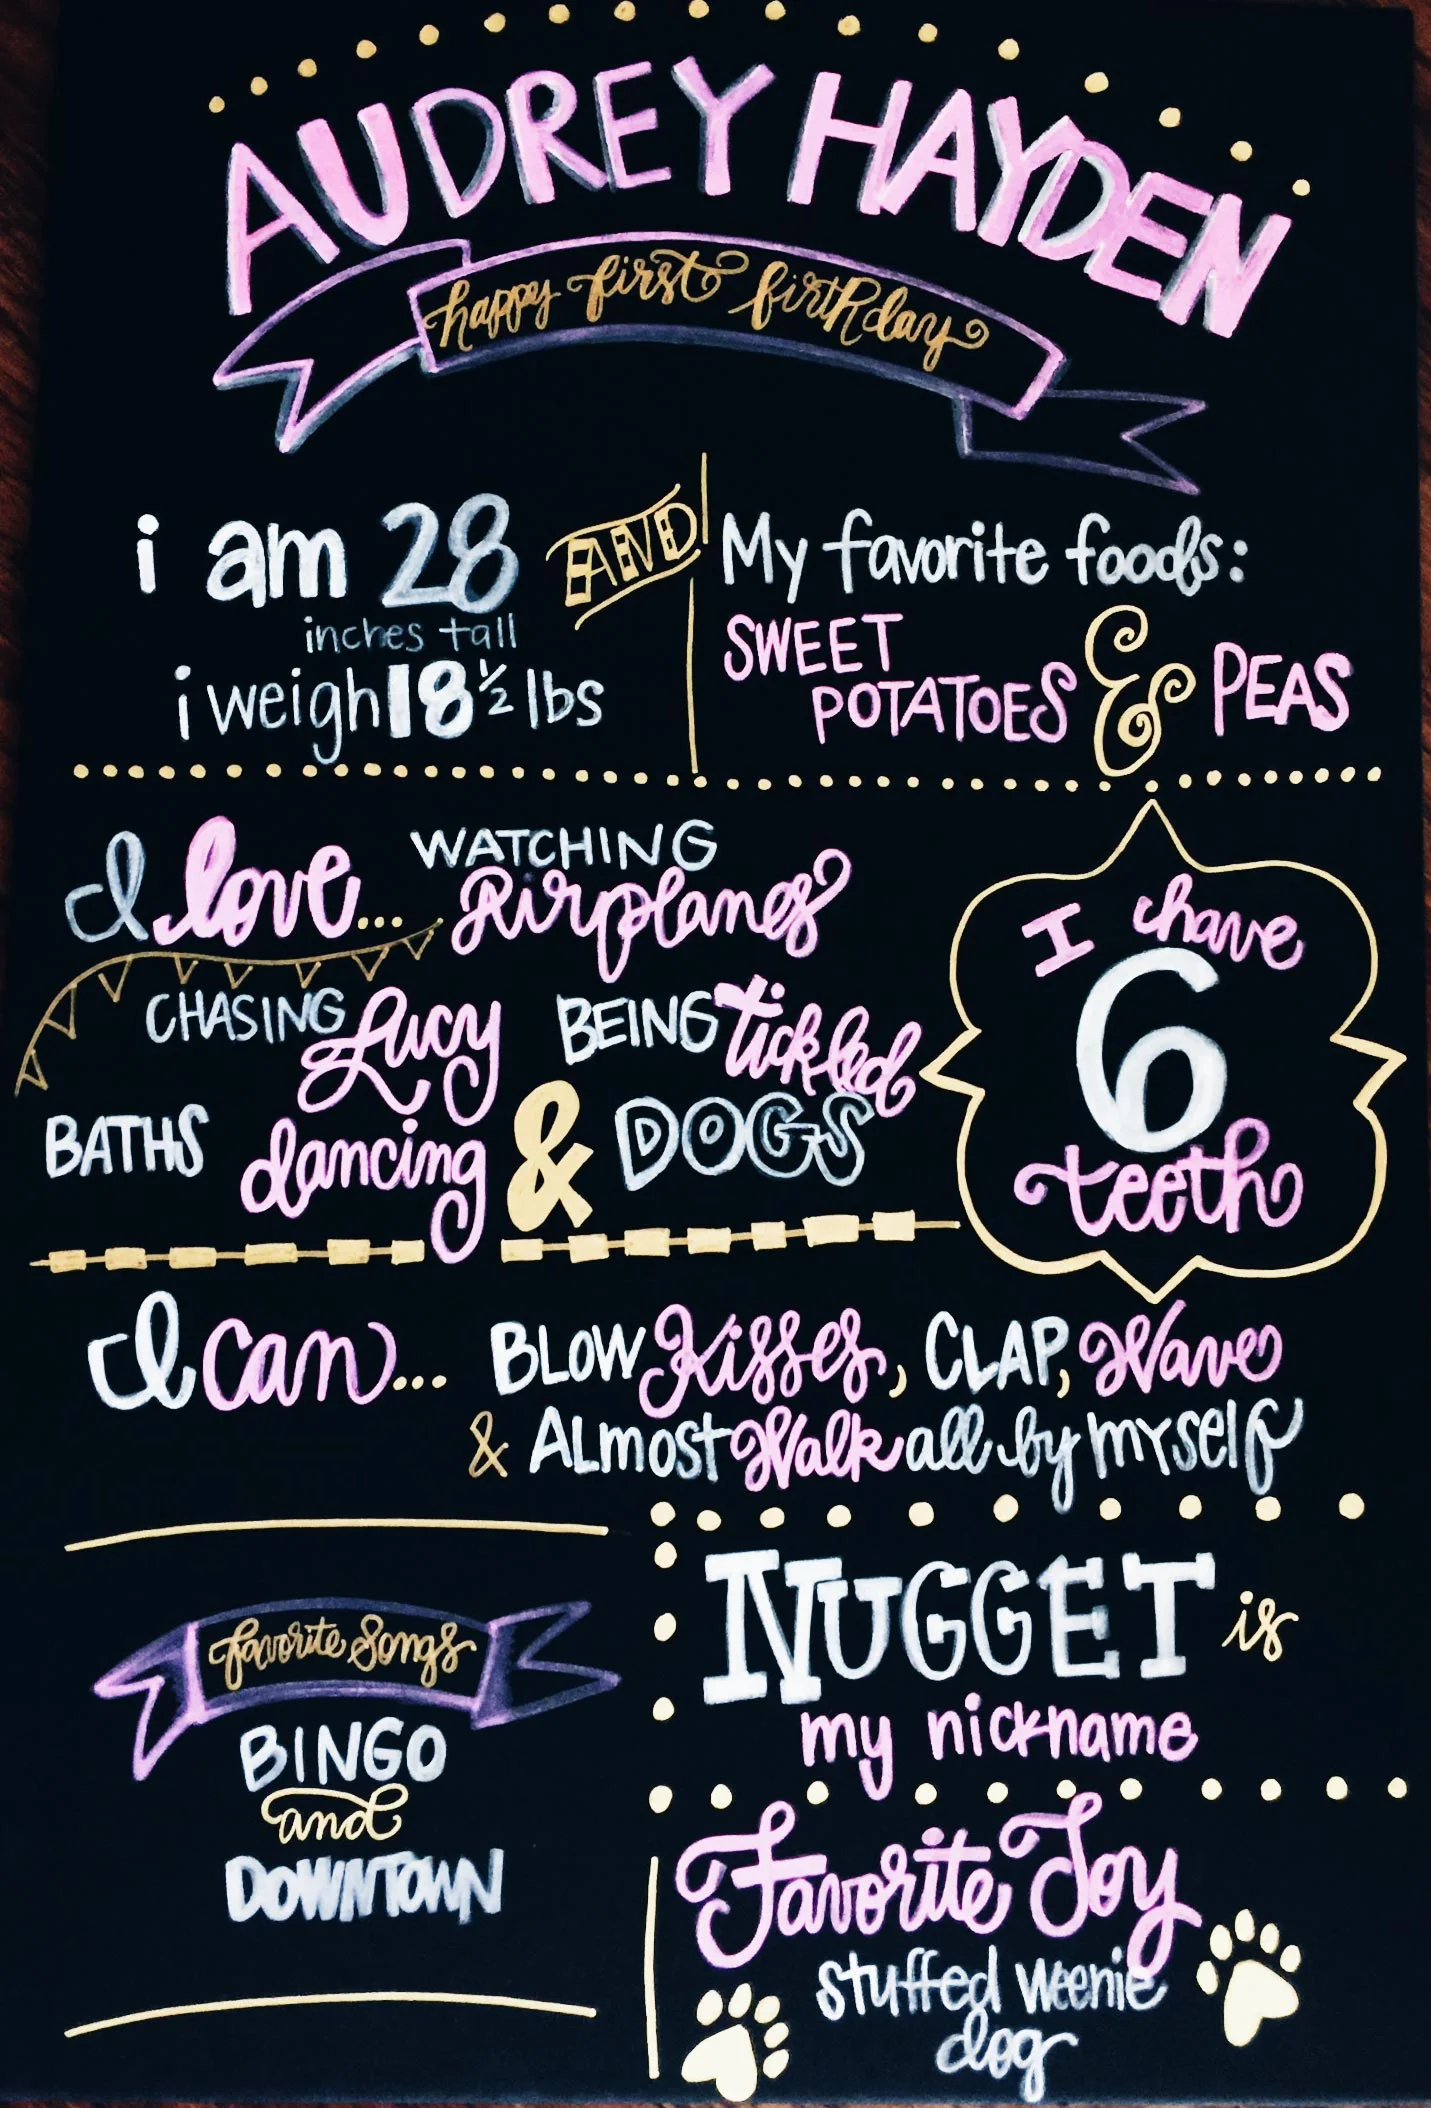 AUDREY HAYDEN
happy first birthday
i am 28
inches tall
i weigh 18 ½ lbs
AND
My favorite foods:
SWEET
POTATOES & PEAS
I love... WATCHING
Airplanes
CHASING Lucy BEING tickled
BATHS dancing & DOGS
I have
6
teeth
I can... BLOW Kisses, CLAP, Wave
& ALmosT Walk all by mYself
favorite Songs
BINGO
and
DOWNTOWN
NUGGET is
my nickname
Favorite Toy
stuffed weenie
dog